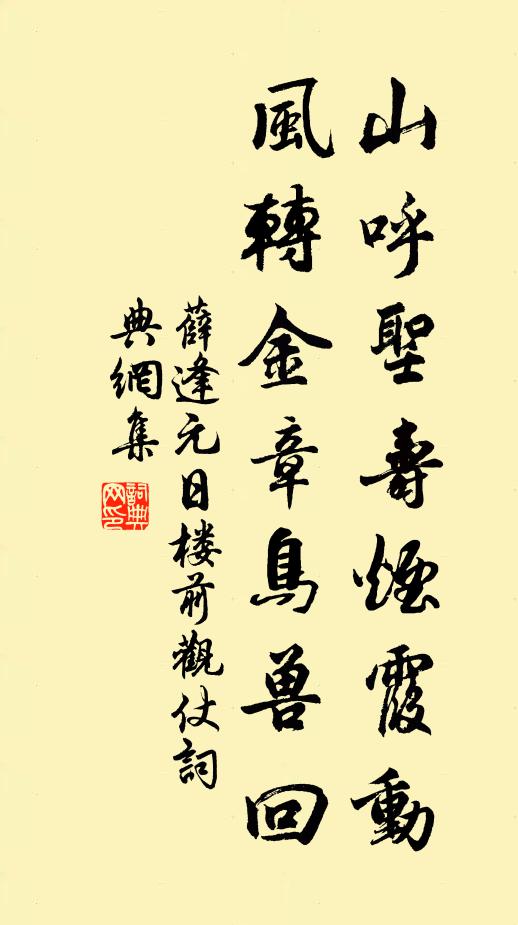 山呼聖壽煙霞動
風轉金章鳥兽回
薛逢元日楼前觀仗詞
典網集
詞典
网印